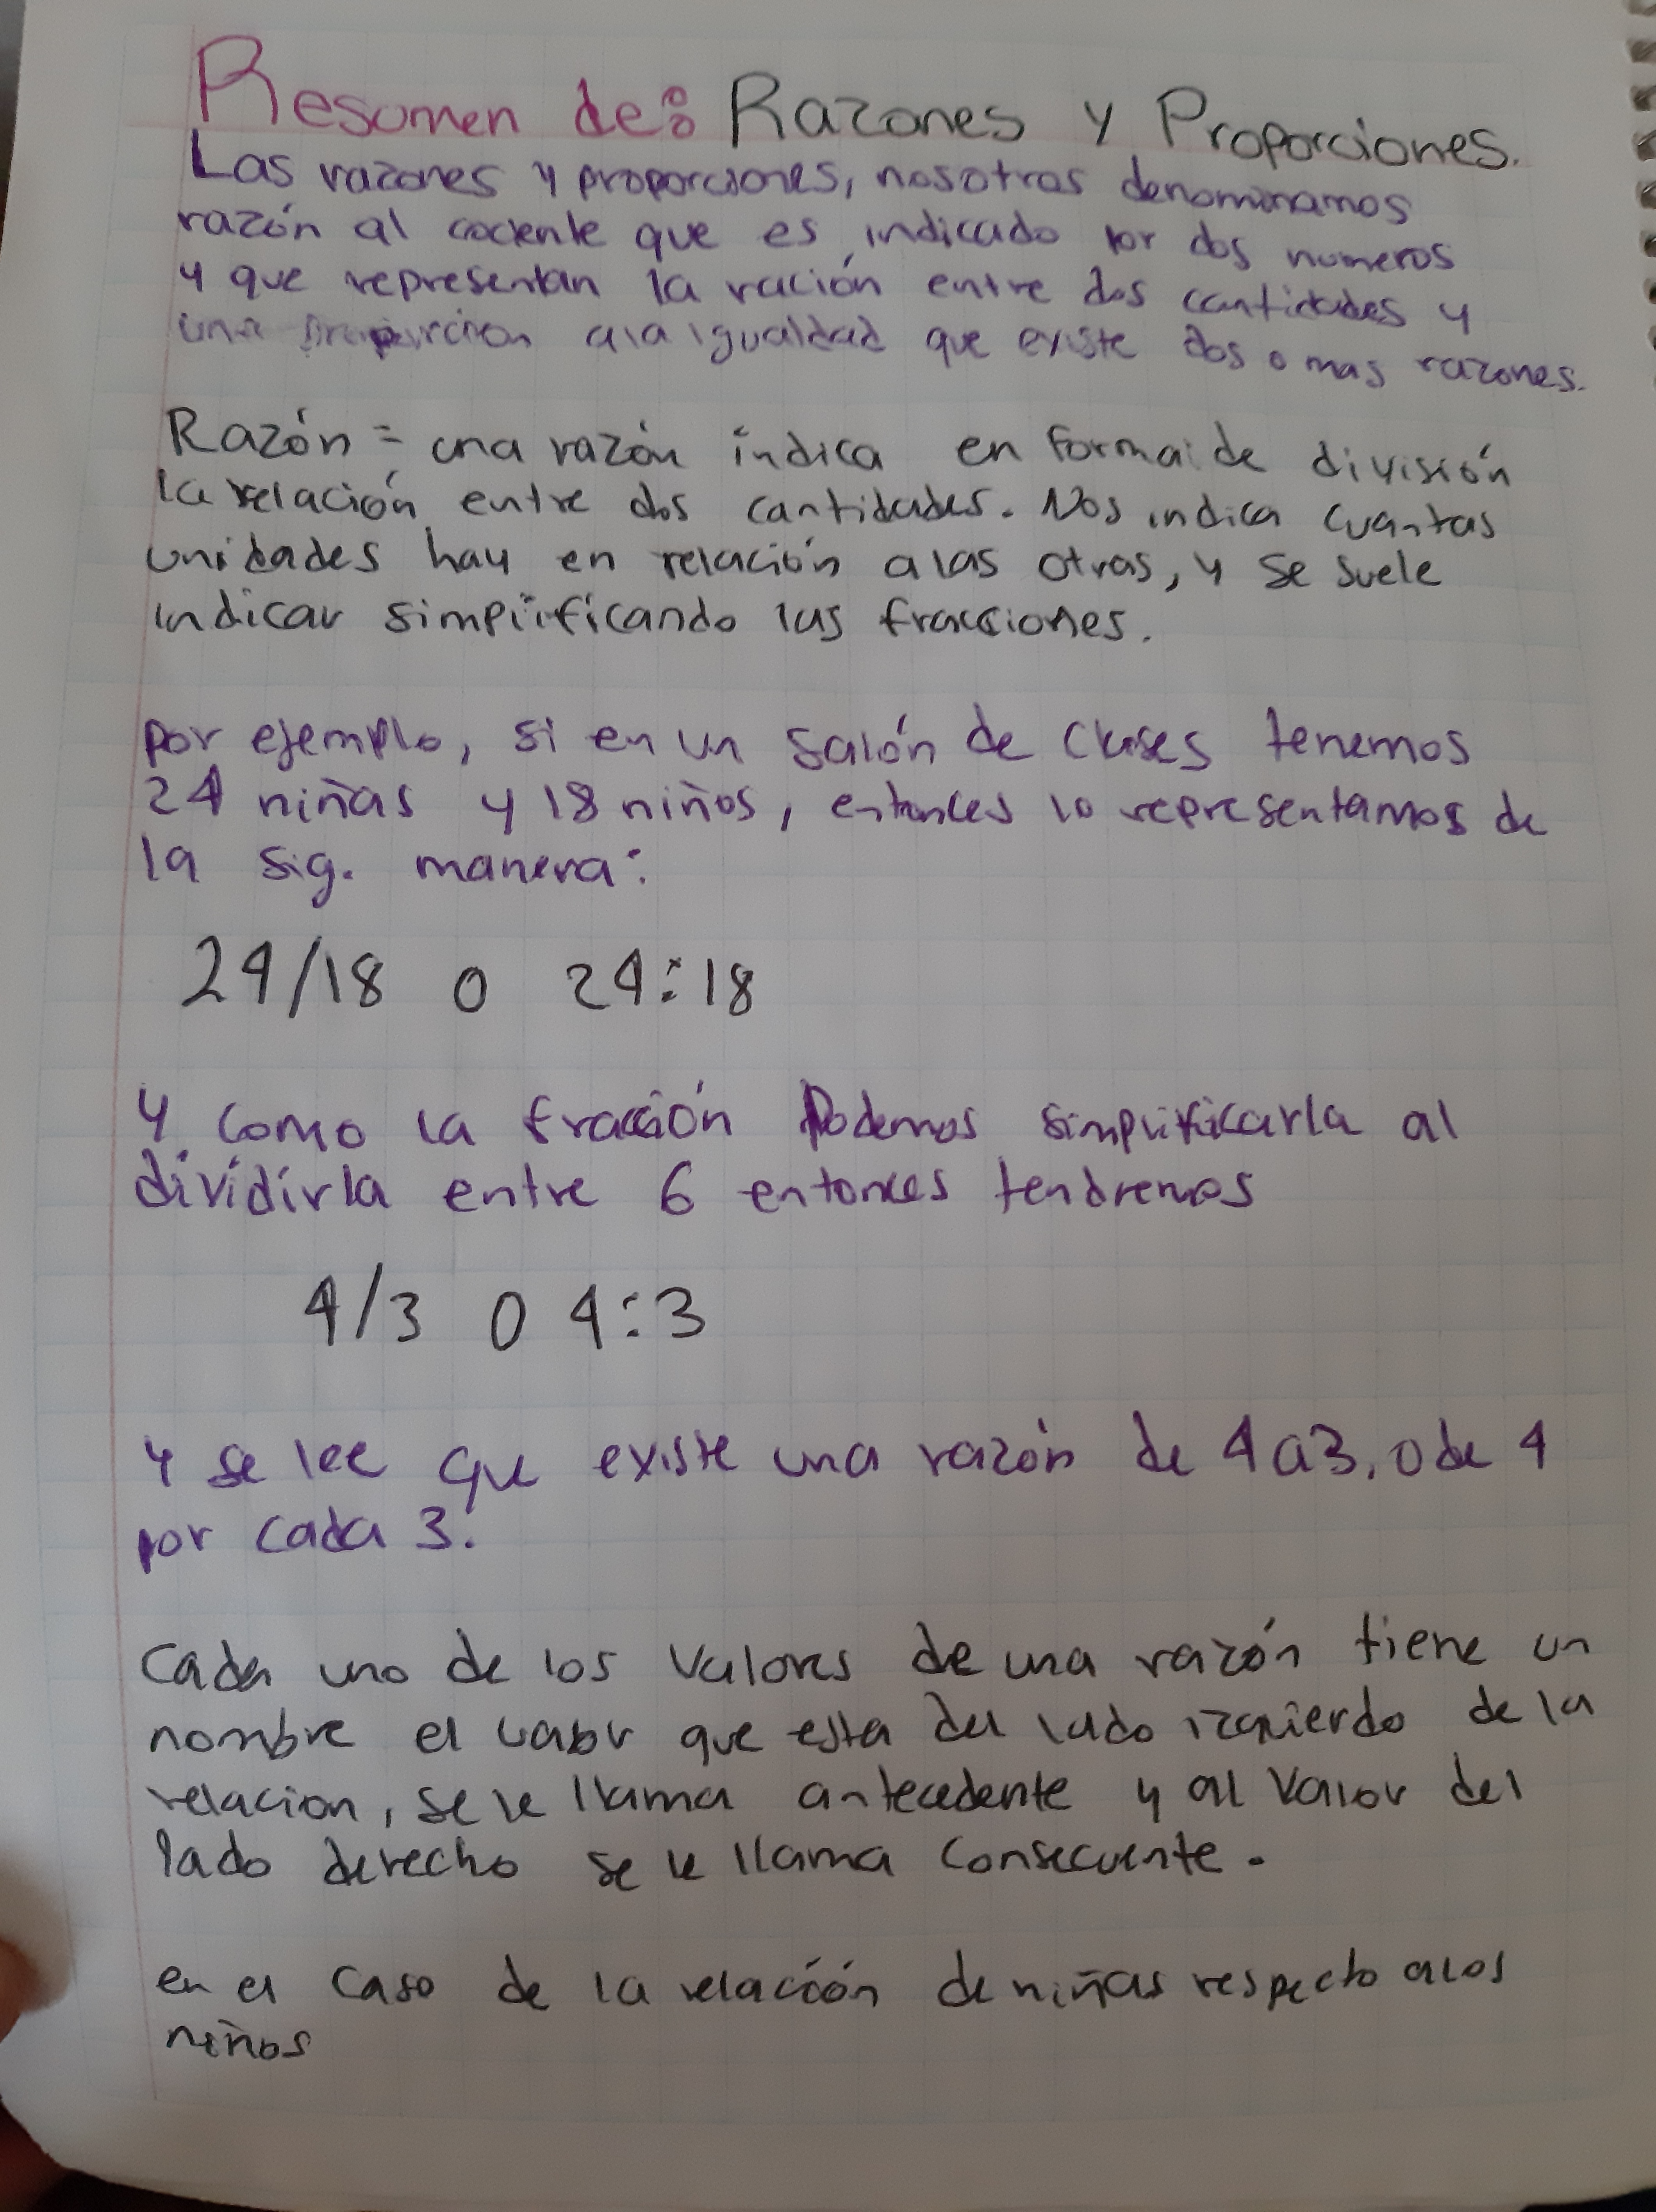 Resumen de: Razones y Proporciones.
Las razones y proporciones, nosotros denominamos
razón al cociente que es indicado por dos numeros
y que representan la ración entre dos cantidades y
una proporcion ala igualdad que existe dos o mas razones.
Razón = una razón indica en forma de división
la relación entre dos cantidades. Nos indica cuantas
unidades hay en relación alas otras, y se suele
indicar simplificando las fracciones.
por ejemplo, si en un salón de clases tenemos
24 niñas y 18 niños, entonces lo representamos de
la sig. manera:
24/18 o 24:18
y como la fracción Podemos simplificarla al
dividirla entre 6 entonces tendremos
4/3 o 4:3
y se lee que existe una razón de 4 a 3, o de 4
por cada 3.
Cada uno de los valores de una razón tiene un
nombre el valor que esta del lado izquierdo de la
relacion, se le llama antecedente y al valor del
lado derecho se le llama consecuente.
en el caso de la relación de niñas respecto alos
niños